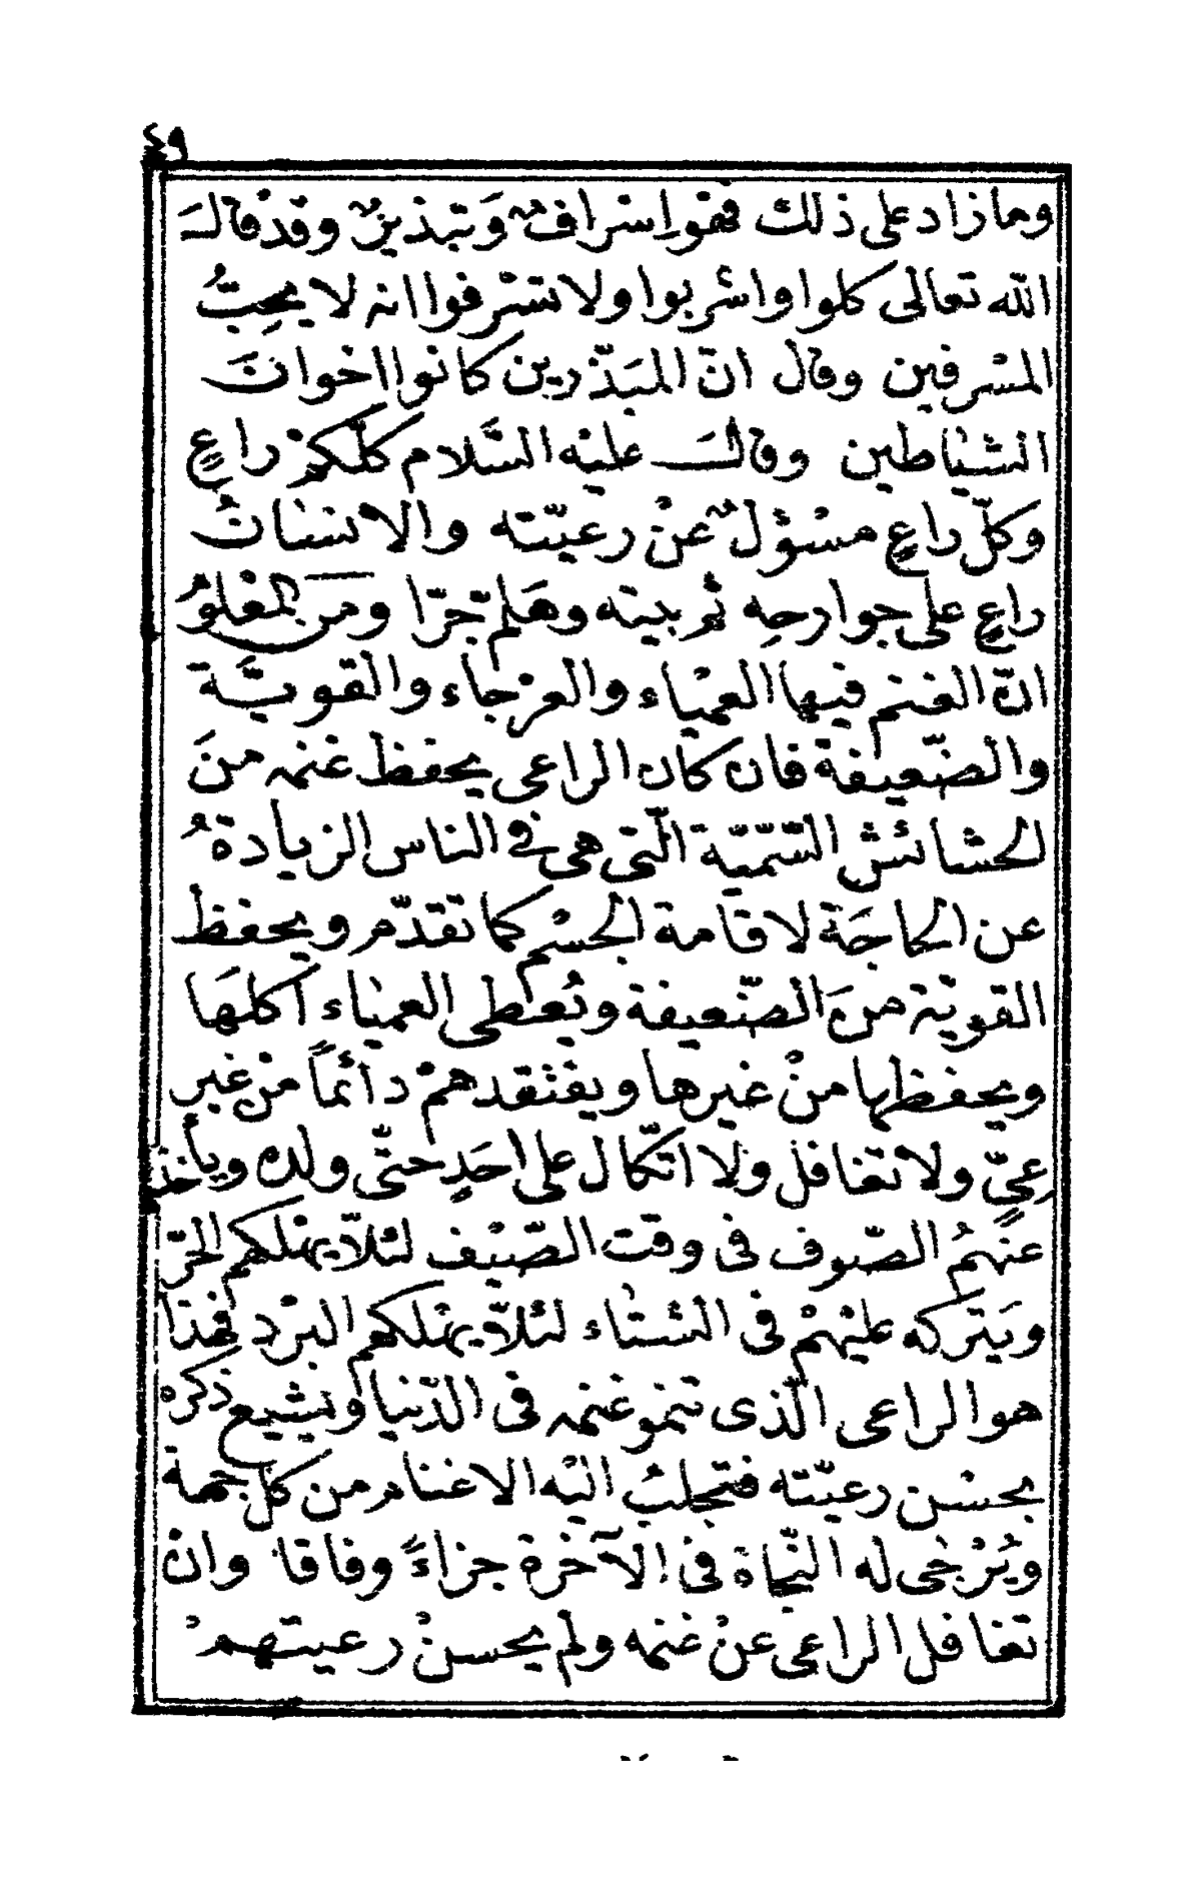 ٤٩
وما زاد على ذلك فهو إسرافٌ وَتبذيرٌ وقدْ قالَ
الله تعالى كلوا واشربوا ولا تسْرفوا انه لا يحِبُّ
المسْرفين وقال انّ المبَذّرين كانوا اخوانَ
الشياطين وقالَ عليْه السَّلام كلّكمْ راعٍ
وكلّ راعٍ مسْؤلٌ عنْ رعيّته والانسانُ
راعٍ على جوارحِه ثم بيته وهلمّ جرّا ومَن المعْلومُ
انّ الغنم فيها العمْياء والعرْجاء والقويَّة
والضّعيفة فان كان الراعى يحفظ غنمه منَ
الحشائش السّمّيّة الّتى هى فى الناس الزيادةُ
عن الحاجَة لاقامة الجسْم كما تقدّم ويحفظ
القويّة منَ الضّعيفة ويُعطى العمياء أكلهَا
ويحفظها منْ غيرها ويفتقدهمْ دائماً منْ غير
عىّ ولا تغافل ولا اتّكال على احَدٍ حتّى ولده ويأخذ
عنهُم الصّوف فى وقت الصّيْف لئلاّ يهْلكهم الحَرّ
ويَتركه عليْهمْ فى الشتاء لئلاّ يهْلكهم البرْد فهذا
هو الراعى الّذى تنمو غنمه فى الدّنيا ويشيع ذكره
بحسْن رعيّته فتجلبُ اليْه الاغنام من كل جهة
ويُرْجى له النّجاة فى الآخرة جزاءً وفاقا وانْ
تغافل الراعى عنْ غنمه ولم يحسنْ رعيتهمْ